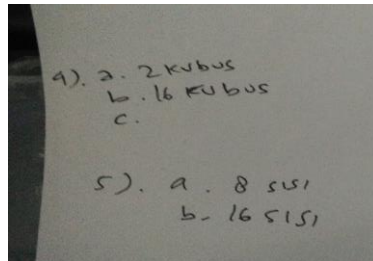 4). a. 2 kubus
b. 16 kubus
c.
5). a. 8 sisi
b- 16 sisi